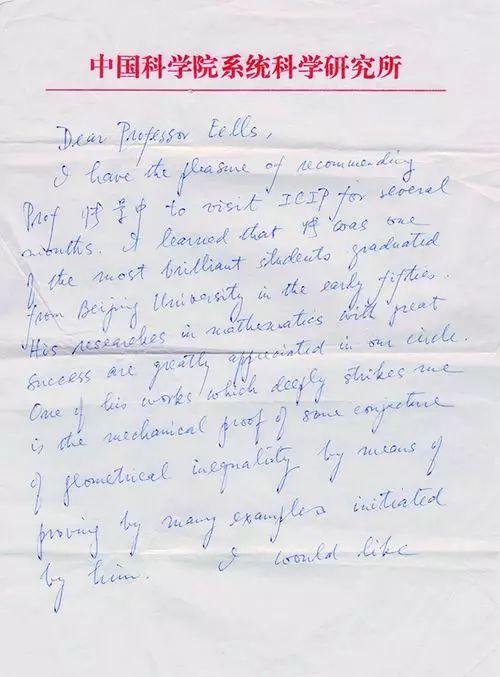 中国科学院系统科学研究所
Dear Professor Eells,
I have the pleasure of recommending
Prof 景中 to visit ICIP for several
months. I learned that was one
of the most brilliant students graduated
from Beijing University in the early fifties.
His researches in mathematics with great
success are greatly appreciated in our circle.
One of his works which deeply strikes me
is the mechanical proof of some conjecture
of geometrical inequality by means of
proving by many examples initiated
by him. I would like